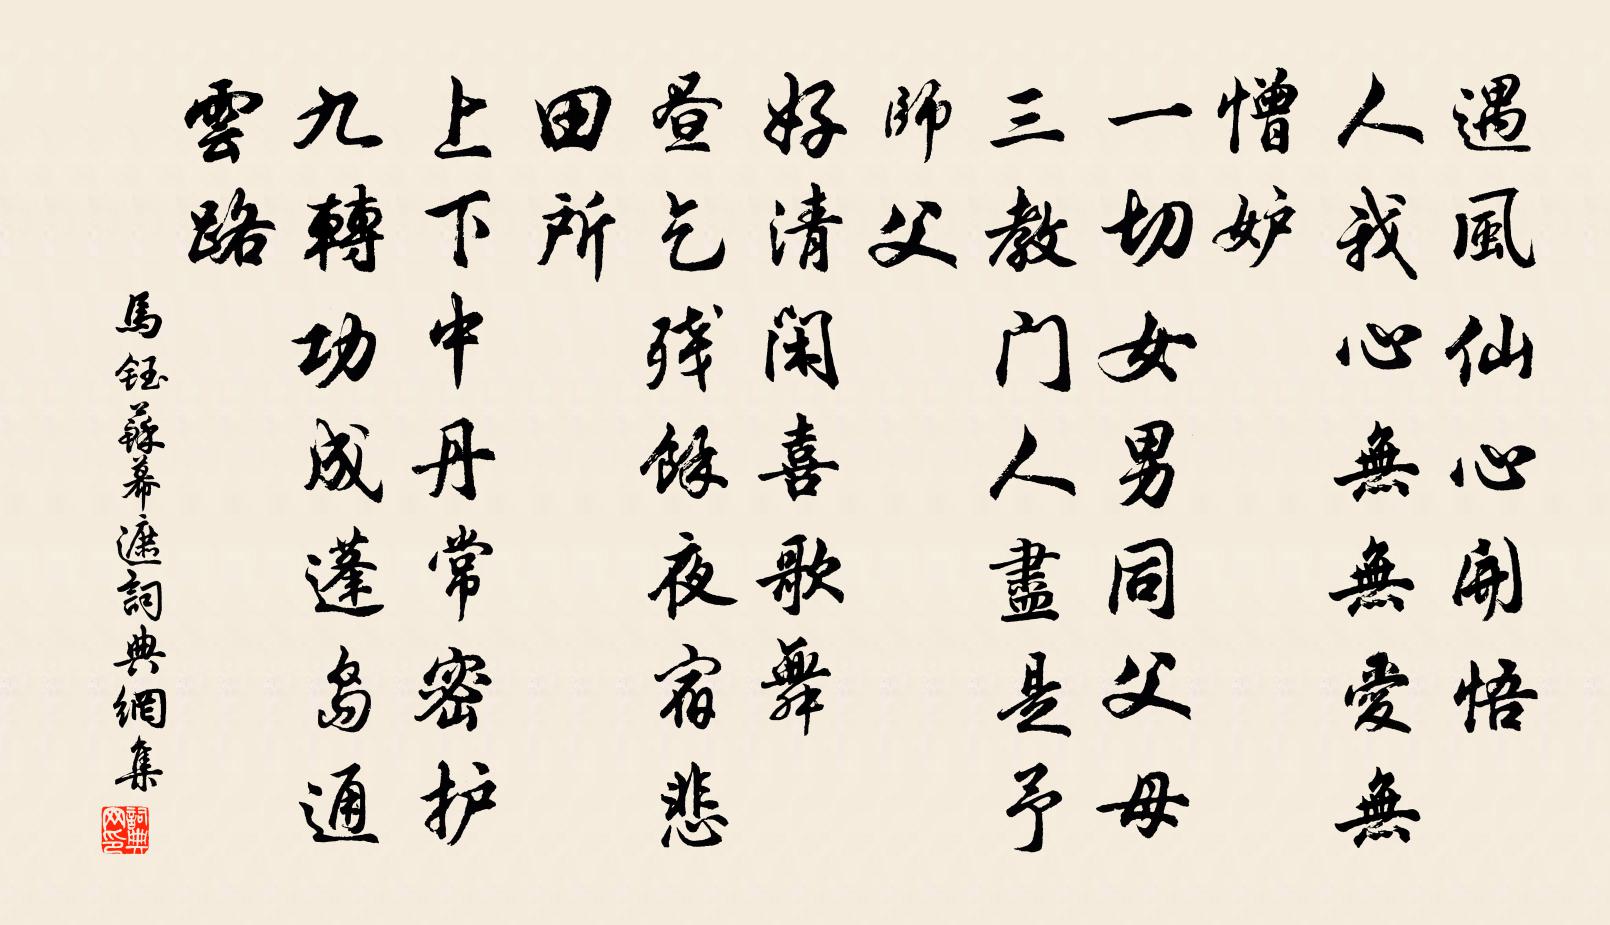 遇風仙心開悟
人我心無無愛無
憎妒
一切女男同父母
三教门人盡是予
師父
好清闲喜歌舞
昼乞残餘夜宿悲
田所
上下中丹常密护
九轉功成蓬島通
雲路
馬鈺蘇幕遮詞典網集
詞典
网印